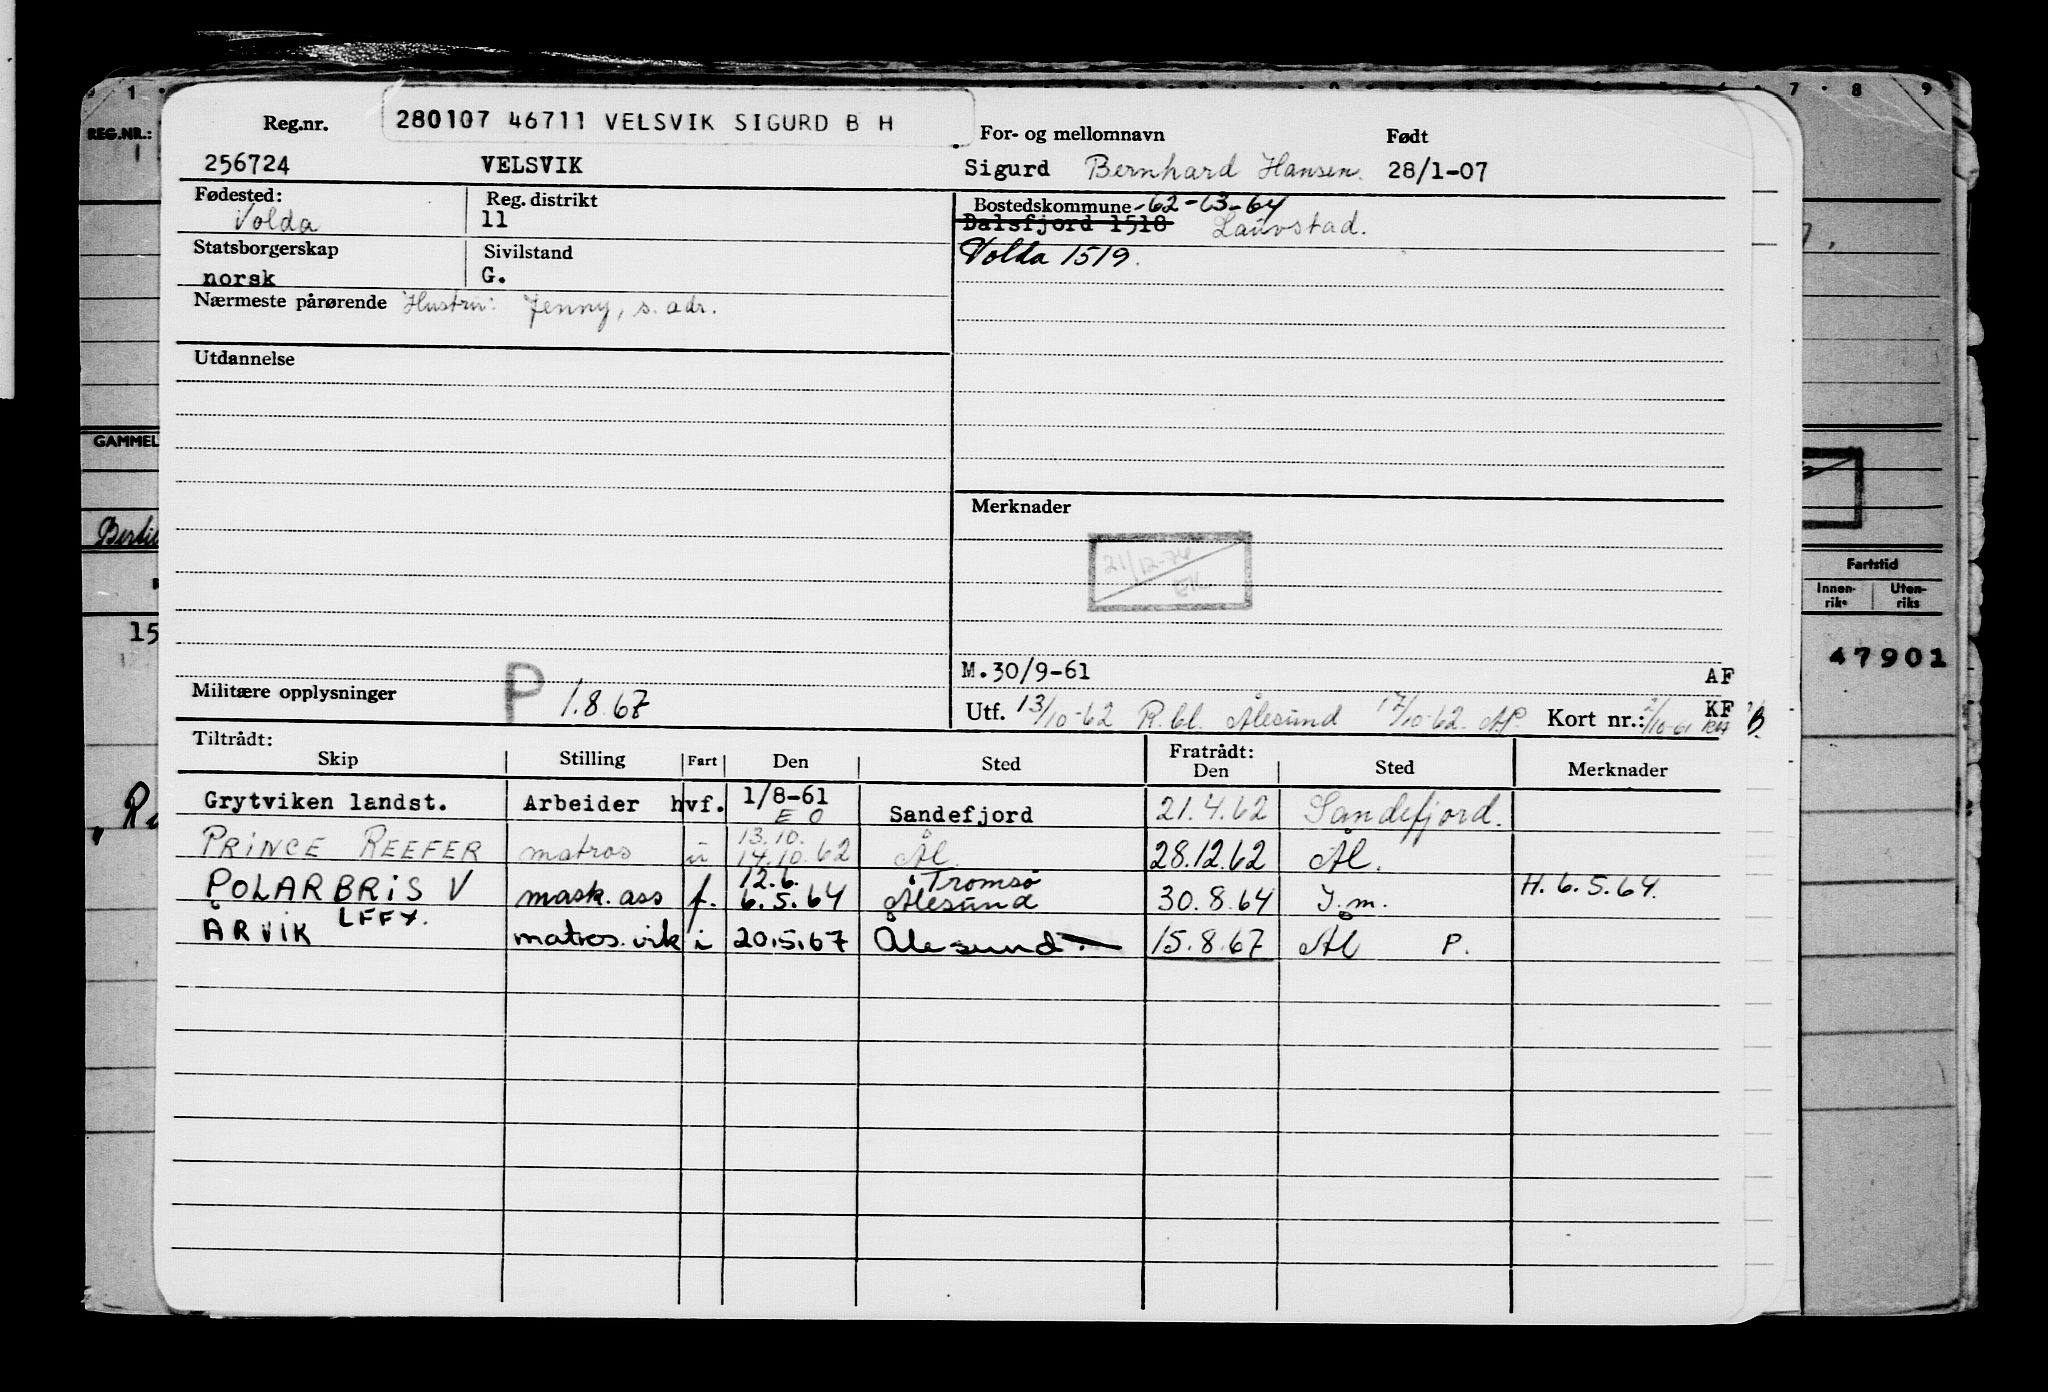 1 7 8 9
REG.NR.:
Reg.nr. 280107 46711 VELSVIK SIGURD B H For- og mellomnavn Født
256724 VELSVIK Sigurd Bernhard Hansen. 28/1-07
Fødested: Reg. distrikt Bostedskommune -62-63-64
Volda 11 Dalsfjord 1518 Lauvstad.
Statsborgerskap Sivilstand Volda 1519.
norsk G.
Nærmeste pårørende Hustru: Jenny, s. adr.
Utdannelse
GAMMEL
Merknader
21/12-74
EK
Fartstid
Innen-riks Uten-riks
15
47901
M.30/9-61 AF
Militære opplysninger P 1.8.67 Utf. 13/10-62 R.bl. Ålesund 17/10-62. AP. Kort nr.: KF
Tiltrådt: Fratrådt:
Skip Stilling Fart Den Sted Den Sted Merknader
Grytviken landst. Arbeider hvf. 1/8-61 Sandefjord 21.4.62 Sandefjord.
E O
13.10.
PRINCE REEFER matros u 14.10.62 Ål. 28.12.62 Ål.
12.6. Tromsø
POLARBRIS V mask. ass f. 6.5.64 Ålesund 30.8.64 I.m. H. 6.5.64.
ARVIK LFFX. matros. vik i 20.5.67 Ålesund. 15.8.67 Ål P.